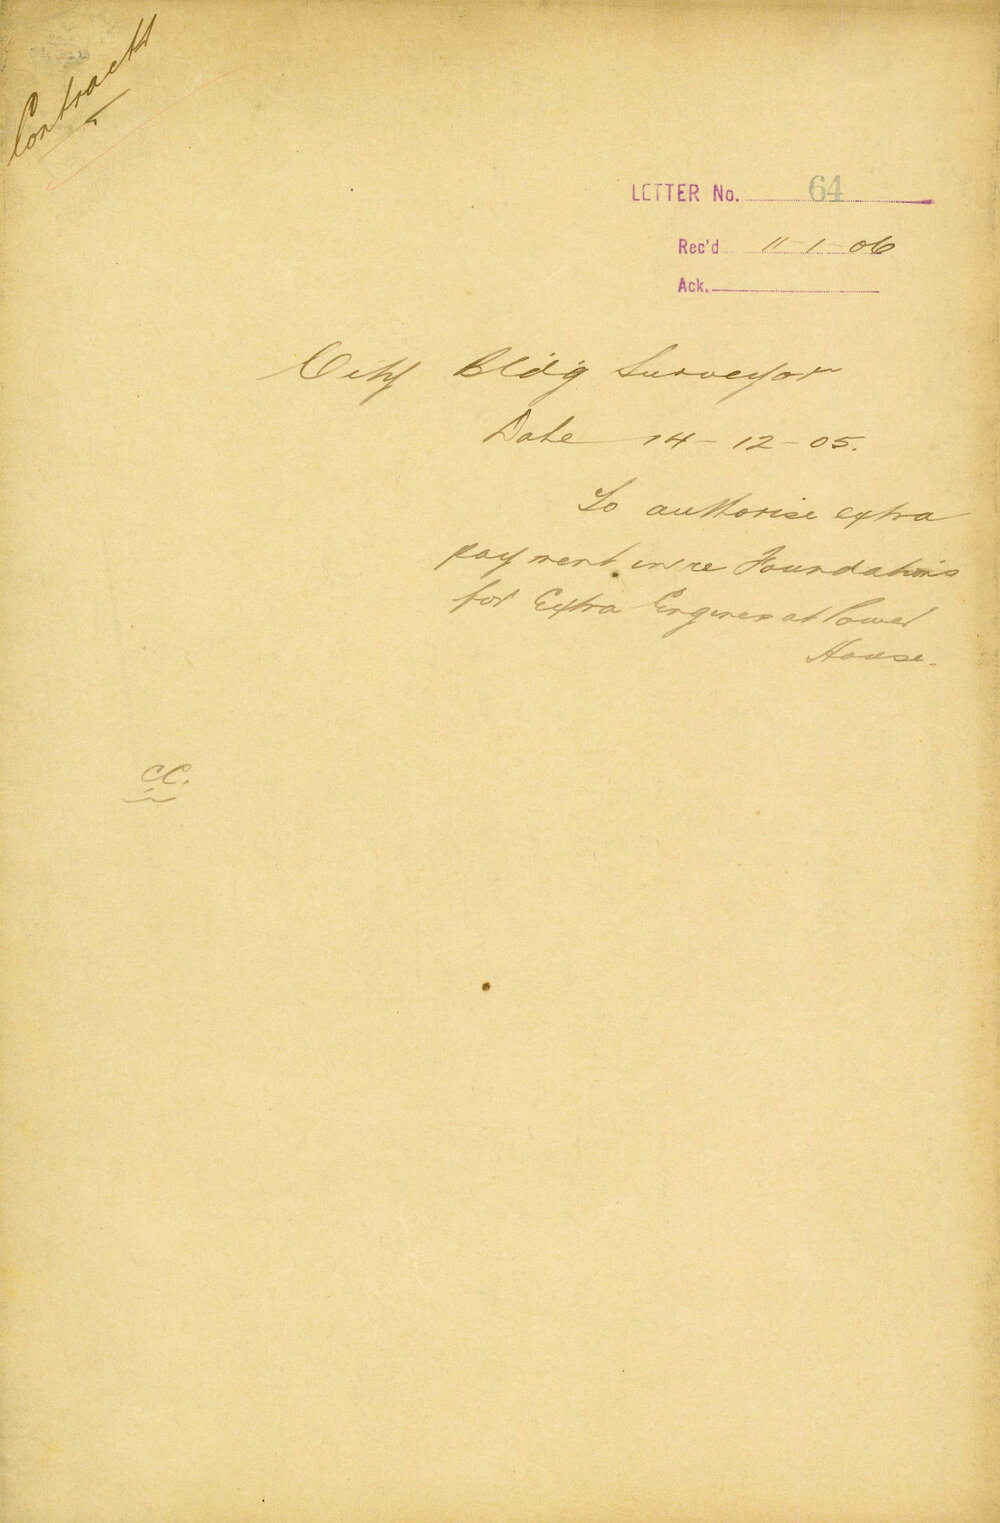 Contracts
LETTER No. 64
Rec'd 11-1-06
Ack.
City Bldg Surveyor
Date 14-12-05.
To authorise extra
payment in re Foundations
for Extra Engines at Power
House.
CC.